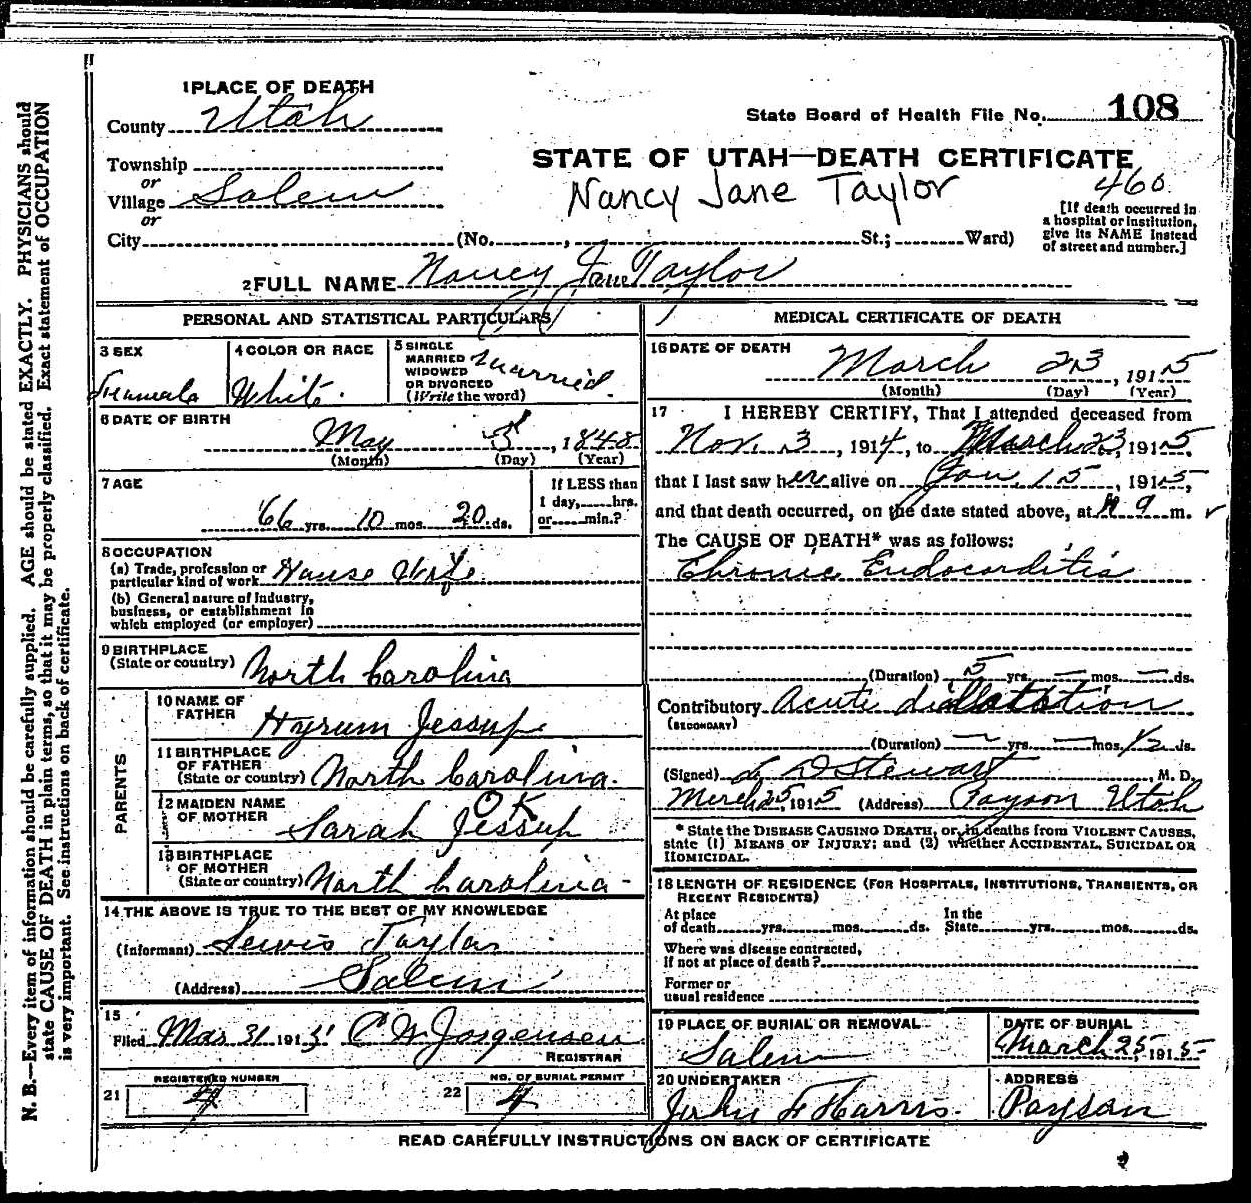 N. B.—Every item of information should be carefully supplied. AGE should be stated EXACTLY. PHYSICIANS should
state CAUSE OF DEATH in plain terms, so that it may be properly classified. Exact statement of OCCUPATION
is very important. See instructions on back of certificate.
1 PLACE OF DEATH
County Utah
State Board of Health File No. 108
STATE OF UTAH—DEATH CERTIFICATE
Township
or
Village Salem
or
Nancy Jane Taylor
460
[If death occurred in
a hospital or institution,
give its NAME instead
of street and number.]
City (No. , St.; Ward)
2 FULL NAME Nancy Jane Taylor
PERSONAL AND STATISTICAL PARTICULARS
3 SEX
Female
4 COLOR OR RACE
White.
5 SINGLE
MARRIED
WIDOWED
OR DIVORCED
(Write the word)
Married
6 DATE OF BIRTH
May 3, 1848
(Month) (Day) (Year)
7 AGE
66 yrs. 10 mos. 20 ds.
If LESS than
1 day, hrs.
or min.?
8 OCCUPATION
(a) Trade, profession or
particular kind of work House Wife
(b) General nature of industry,
business, or establishment in
which employed (or employer)
9 BIRTHPLACE
(State or country) North Carolina
PARENTS
10 NAME OF
FATHER Hyrum Jessup
11 BIRTHPLACE
OF FATHER
(State or country) North Carolina.
12 MAIDEN NAME
OF MOTHER OK
Sarah Jessup
13 BIRTHPLACE
OF MOTHER
(State or country) North Carolina -
14 THE ABOVE IS TRUE TO THE BEST OF MY KNOWLEDGE
(Informant) Lewis Taylor
(Address) Salem
15
Filed Mar 31 1915 C W Jorgensen
REGISTRAR
21 REGISTERED NUMBER 4
22 NO. OF BURIAL PERMIT 4
MEDICAL CERTIFICATE OF DEATH
16 DATE OF DEATH
March 23, 1915
(Month) (Day) (Year)
17 I HEREBY CERTIFY, That I attended deceased from
Nov. 3, 1914, to March 23, 1915,
that I last saw her alive on Jan. 15, 1915,
and that death occurred, on the date stated above, at 9 m.
The CAUSE OF DEATH* was as follows:
Chronic Endocarditis
(Duration) 5 yrs. — mos. — ds.
Contributory Acute dillatation
(SECONDARY)
(Duration) — yrs. — mos. 1/2 ds.
(Signed) L D Stewart, M. D.
March 25, 1915 (Address) Payson Utah
* State the DISEASE CAUSING DEATH, or, in deaths from VIOLENT CAUSES,
state (1) MEANS OF INJURY; and (2) whether ACCIDENTAL, SUICIDAL OR
HOMICIDAL.
18 LENGTH OF RESIDENCE (FOR HOSPITALS, INSTITUTIONS, TRANSIENTS, OR
RECENT RESIDENTS)
At place
of death yrs. mos. ds.
In the
State yrs. mos. ds.
Where was disease contracted,
if not at place of death?
Former or
usual residence
19 PLACE OF BURIAL OR REMOVAL
Salem
DATE OF BURIAL
March 25, 1915
20 UNDERTAKER
John F Harris.
ADDRESS
Payson
READ CAREFULLY INSTRUCTIONS ON BACK OF CERTIFICATE